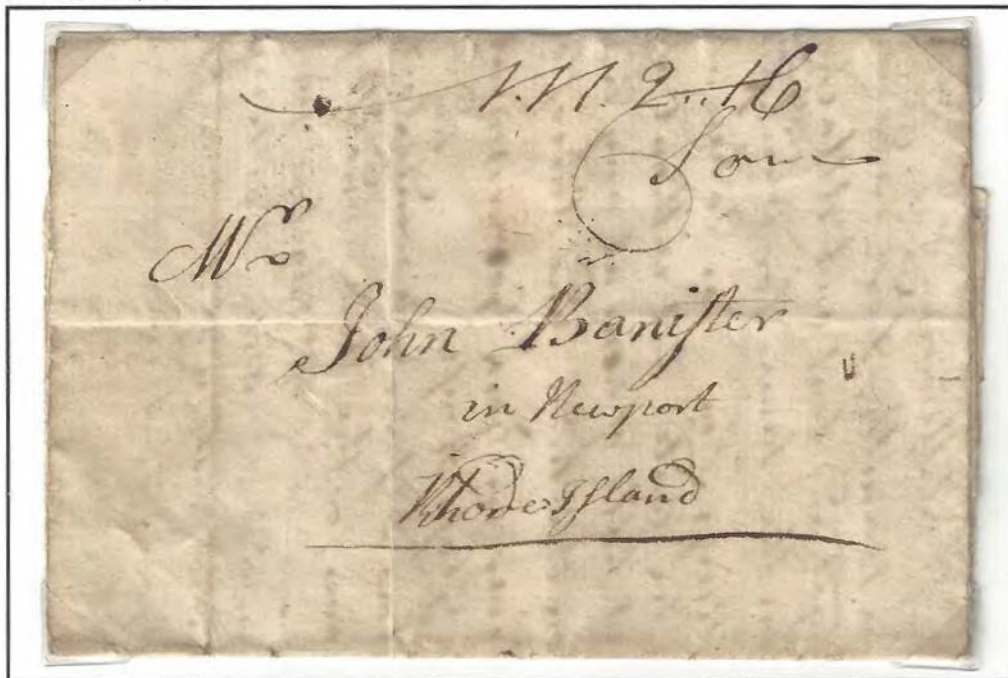 2..16
Mr
John Baniſter
in Newport
Rhode Iſland